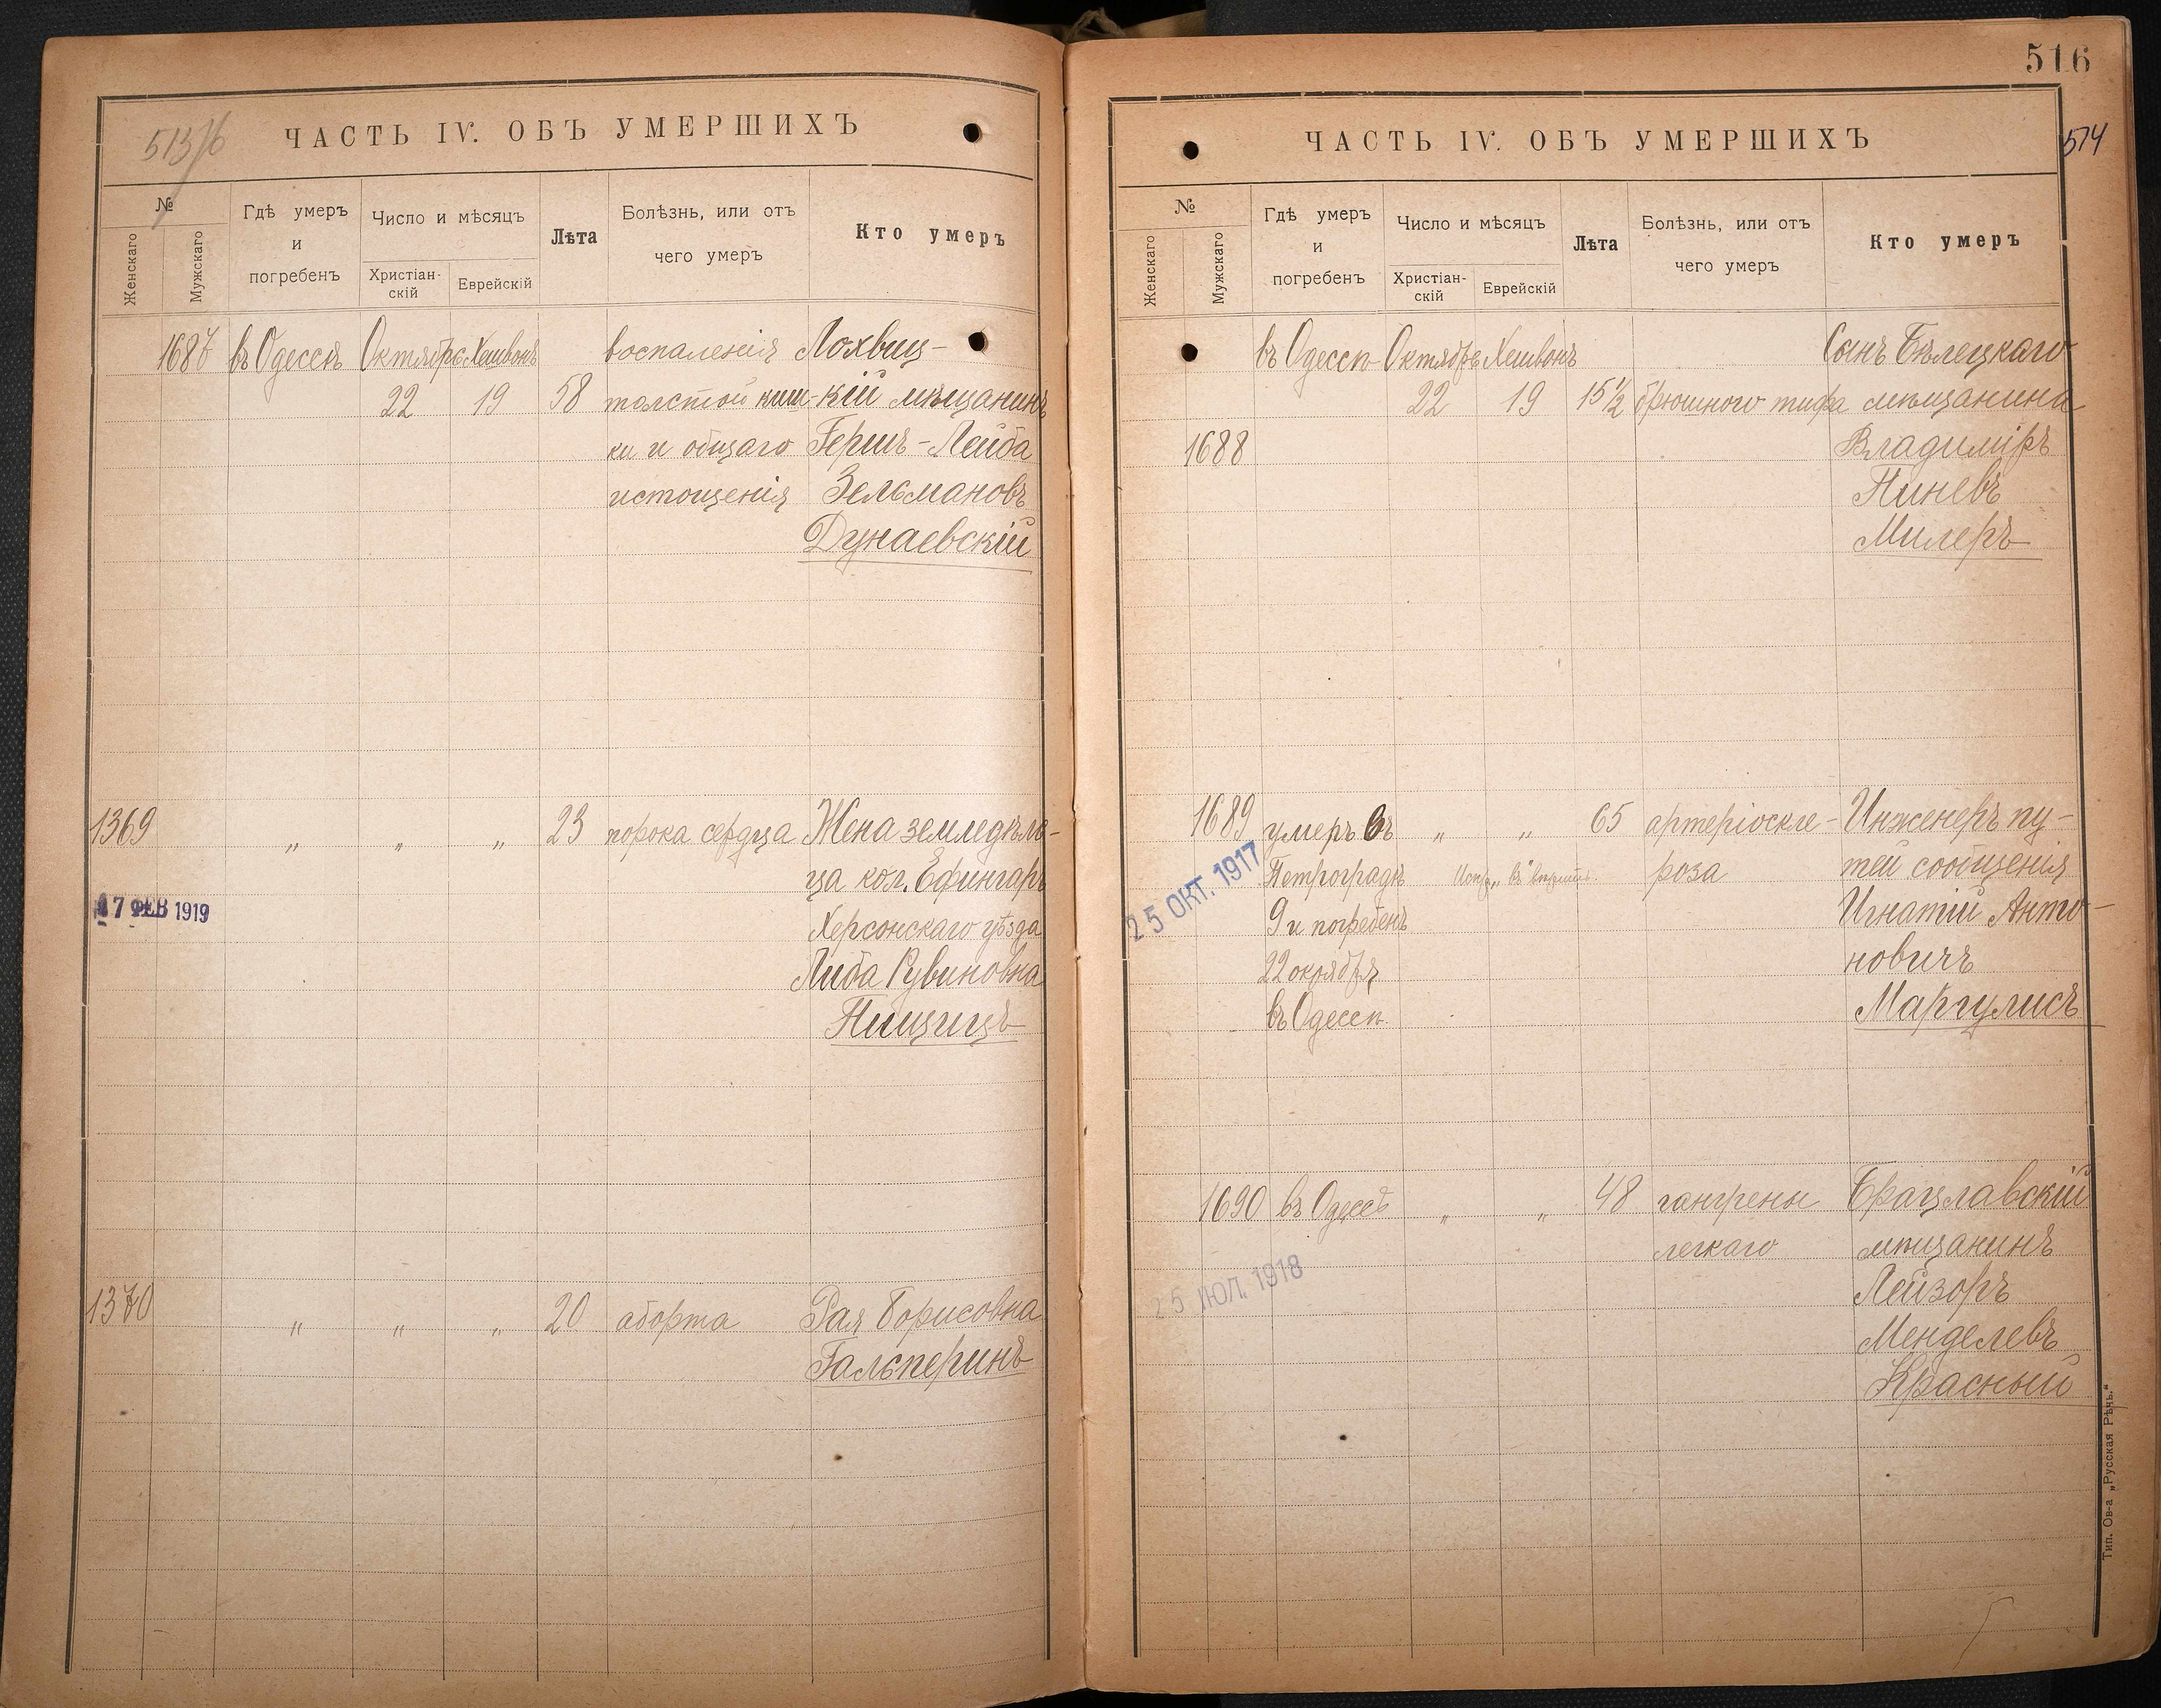 513/6
ЧАСТЬ IV. ОБЪ УМЕРШИХЪ
№
Женскаго
Мужскаго
Гдѣ умеръ
и
погребенъ
Число и мѣсяцъ
Христіан-
скій
Еврейскій
Лѣта
Болѣзнь, или отъ
чего умеръ
Кто умеръ
1687 въ Одессѣ Октябрь Хешвонъ воспаленія Лохвиц-
22 19 58 толстой киш- кій мѣщанинъ
ки и общаго Гершъ-Лейба
истощенія Зельмановъ
Дунаевскій
1369 „ „ „ 23 порока сердца Жена земледѣль-
ца кол. Ефингаръ
17 ФЕВ 1919
Херсонскаго уѣзда
Либа Рувиновна
Пищицъ
1370 „ „ „ 20 аборта Рая Борисовна
Гальперинъ
516
514
ЧАСТЬ IV. ОБЪ УМЕРШИХЪ
№
Женскаго
Мужскаго
Гдѣ умеръ
и
погребенъ
Число и мѣсяцъ
Христіан-
скій
Еврейскій
Лѣта
Болѣзнь, или отъ
чего умеръ
Кто умеръ
въ Одессѣ Октябрь Хешвонъ Сынъ Бѣлецкаго
22 19 15½ брюшного тифа мѣщанина
1688 Владиміръ
Пиневъ
Милеръ
1689 умеръ въ „ „ 65 артеріоскле- Инженеръ пу-
Петроградѣ роза тей сообщенія
25 ОКТ. 1917
9 и погребенъ Игнатій Анто-
22 окоября новичъ
въ Одессѣ Маргулисъ
1690 въ Одессѣ „ „ 48 гангрены Брацлавскій
легкаго мѣщанинъ
25 ИЮЛ. 1918
Лейзоръ
Менделевъ
Красный
Тип. Ов-а „Русская Рѣчь.“